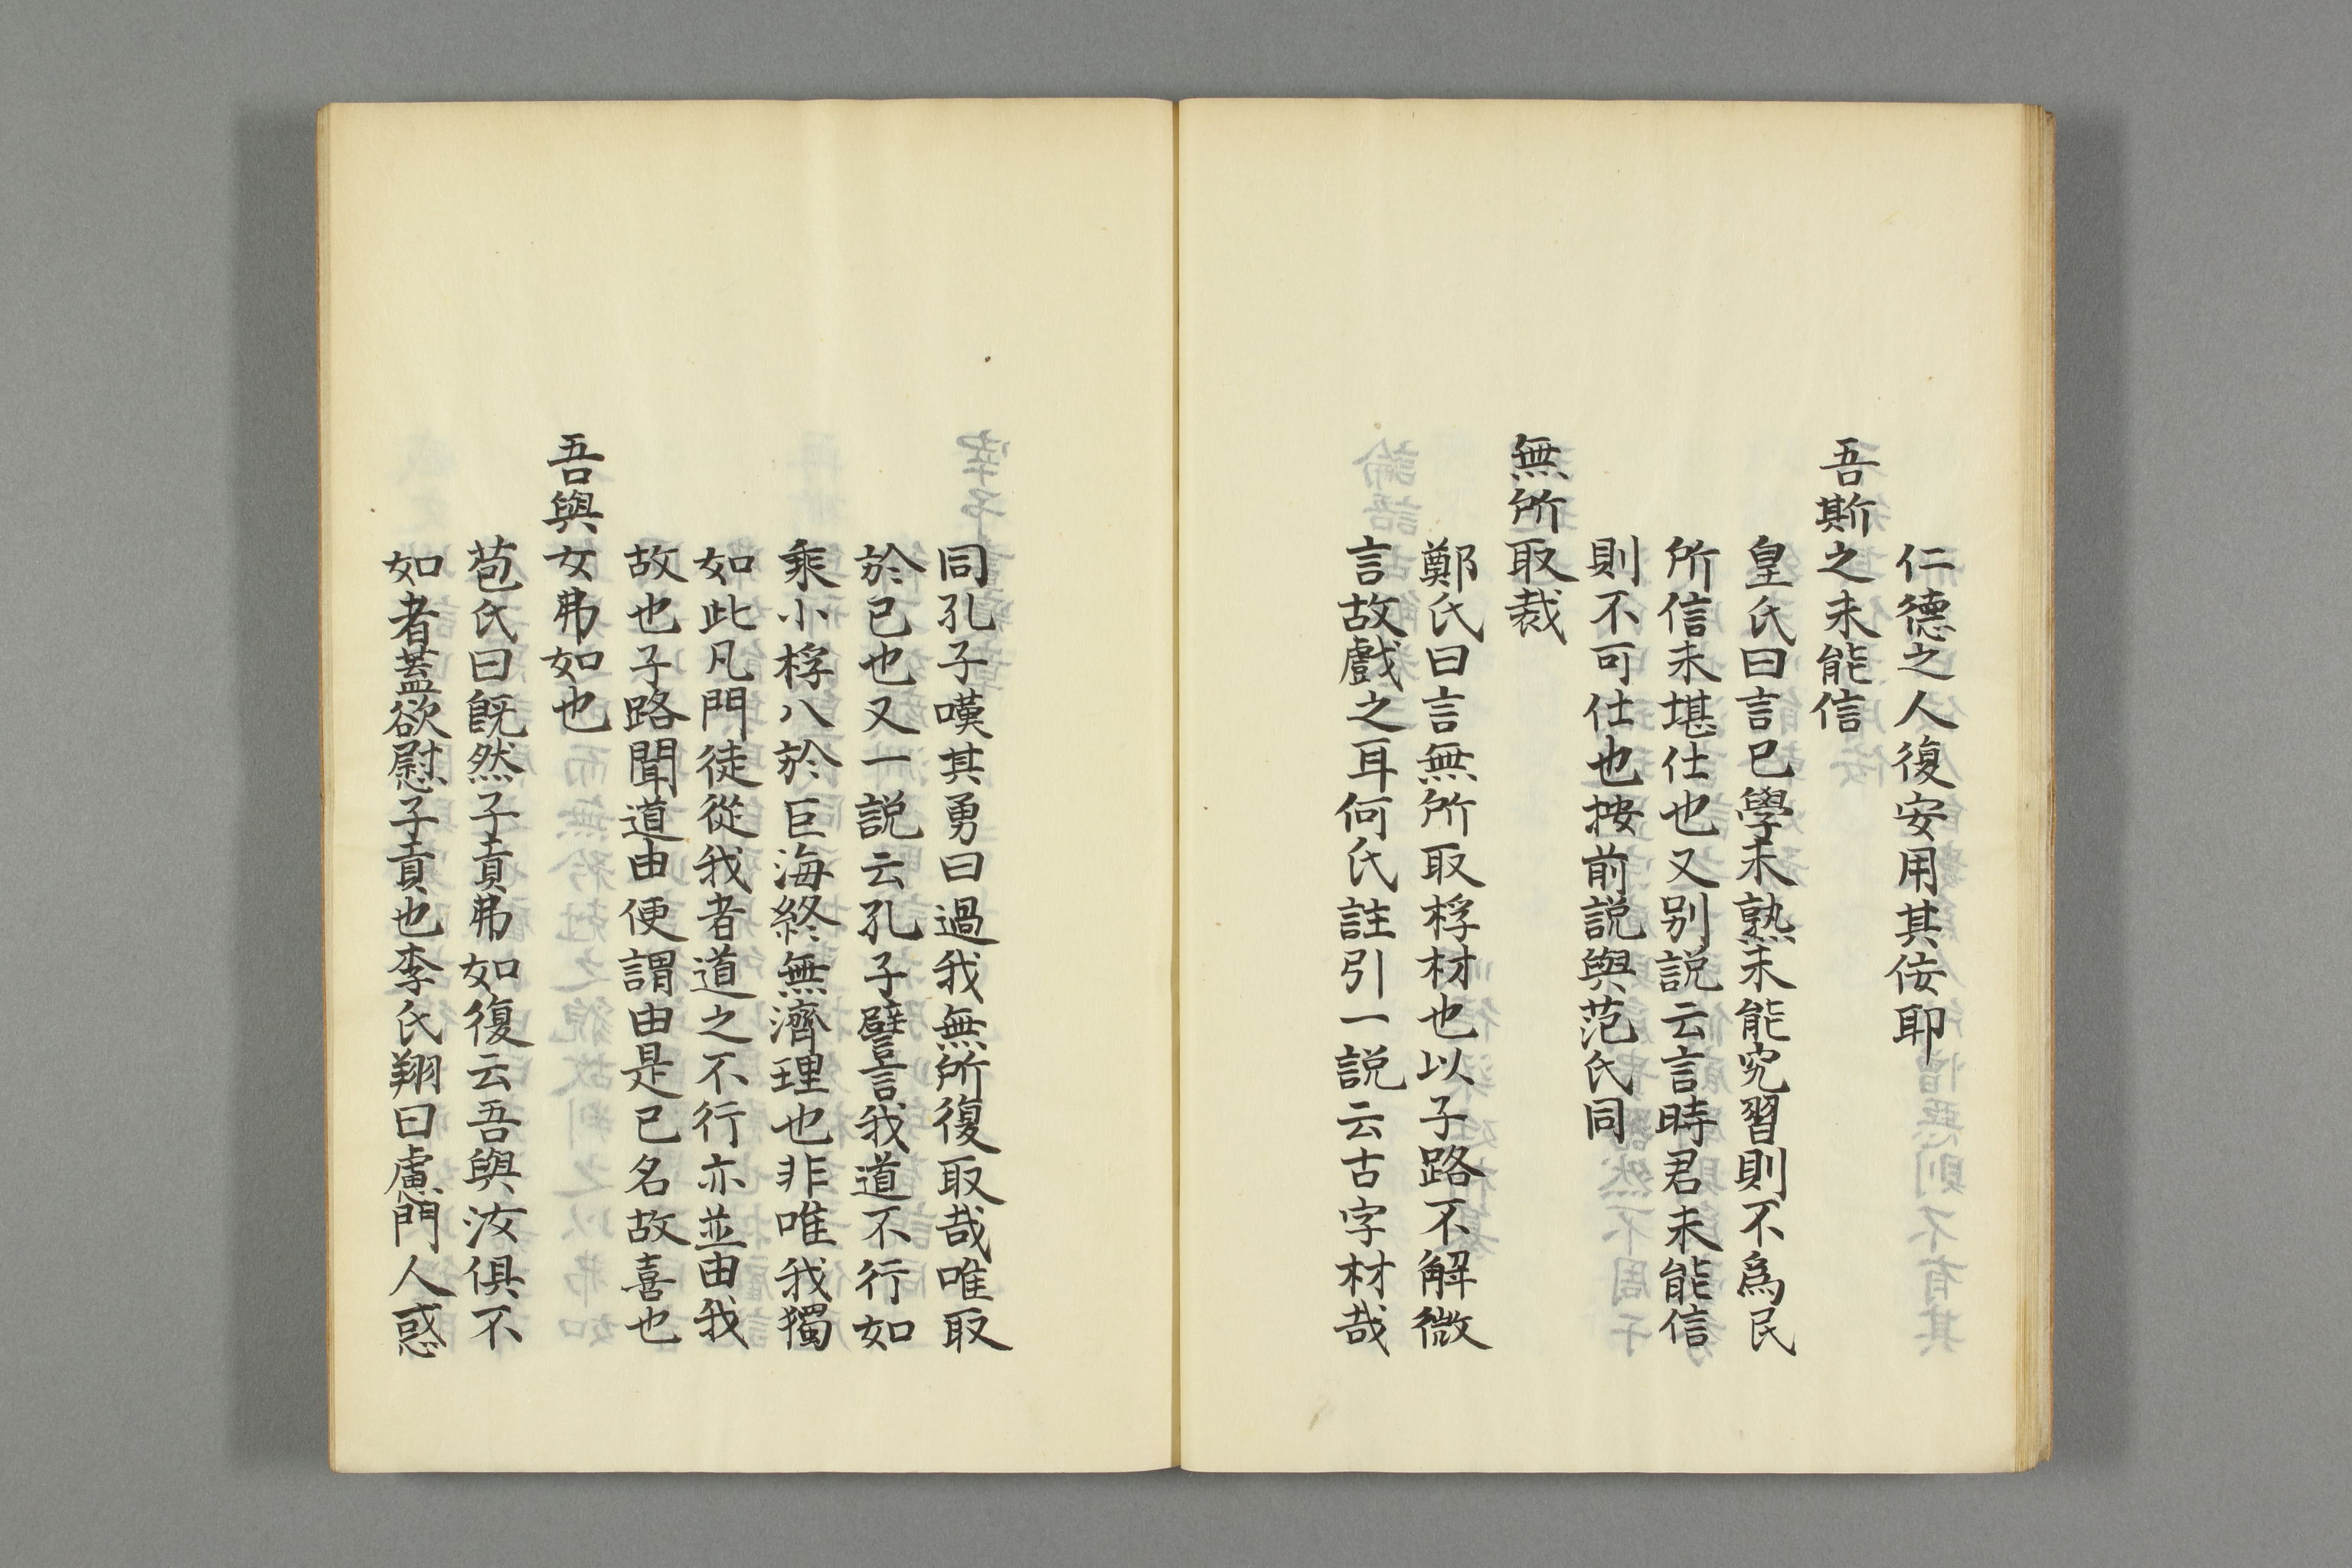 仁德之人復安用其佞耶
吾斯之未能信
皇氏曰言已學未熟未能究習則不爲民
所信未堪仕也又别説云言時君未能信
則不可仕也按前説與范氏同
無所取裁
鄭氏曰言無所取桴材也以子路不解微
言故戲之耳何氏註引一説云古字材哉
同孔子嘆其勇曰過我無所復取哉唯取
於已也又一説云孔子譬言我道不行如
乘小桴入於巨海終無濟理也非唯我獨
如此凡門徒從我者道之不行亦並由我
故也子路聞道由便謂由是已名故喜也
吾與女弗如也
苞氏曰既然子貢弗如復云吾與汝俱不
如者蓋欲慰子貢也李氏翔曰慮門人惑